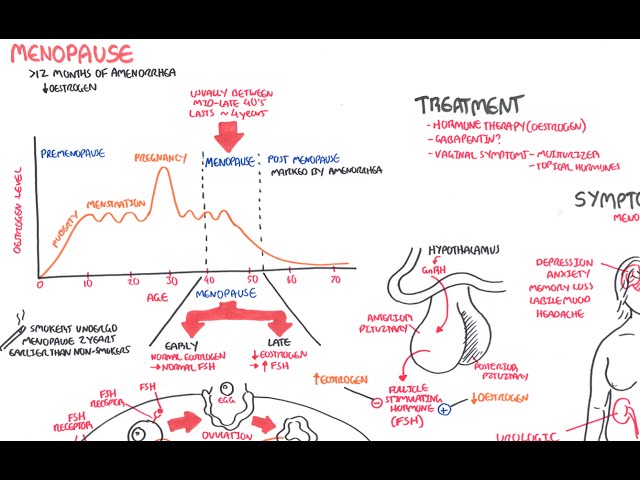 MENOPAUSE
>12 MONTHS OF AMENORRHEA
↓OESTROGEN
USUALLY BETWEEN
MID-LATE 40'S
LASTS ~ 4 YEARS
OESTROGEN LEVEL
PREMENOPAUSE
PREGNANCY
MENOPAUSE
POST MENOPAUSE
MARKED BY AMENORRHEA
PUBERTY
MENSTRATION
0 10 20 30 40 50 60 70
AGE
MENOPAUSE
SMOKERS UNDERGO
MENOPAUSE 2 YEARS
EARLIER THAN NON-SMOKERS
EARLY
NORMAL EOSTROGEN
→ NORMAL FSH
LATE
↓ EOSTROGEN
→ ↑ FSH
FSH
FSH
RECEPTOR
FSH
RECEPTOR
EGG
OVULATION
TREATMENT
- HORMONE THERAPY (OESTROGEN)
- GABAPENTIN?
- VAGINAL SYMPTOMS - MOISTURIZER
- TOPICAL HORMONES
HYPOTHALAMUS
GnRH
ANTERIOR
PITUITARY
POSTERIOR
PITUITARY
↑ OESTROGEN
FOLLICLE
STIMULATING
HORMONE
(FSH)
↓ OESTROGEN
SYMPTO
MENO
DEPRESSION
ANXIETY
MEMORY LOSS
LABILE MOOD
HEADACHE
UROLOGIC